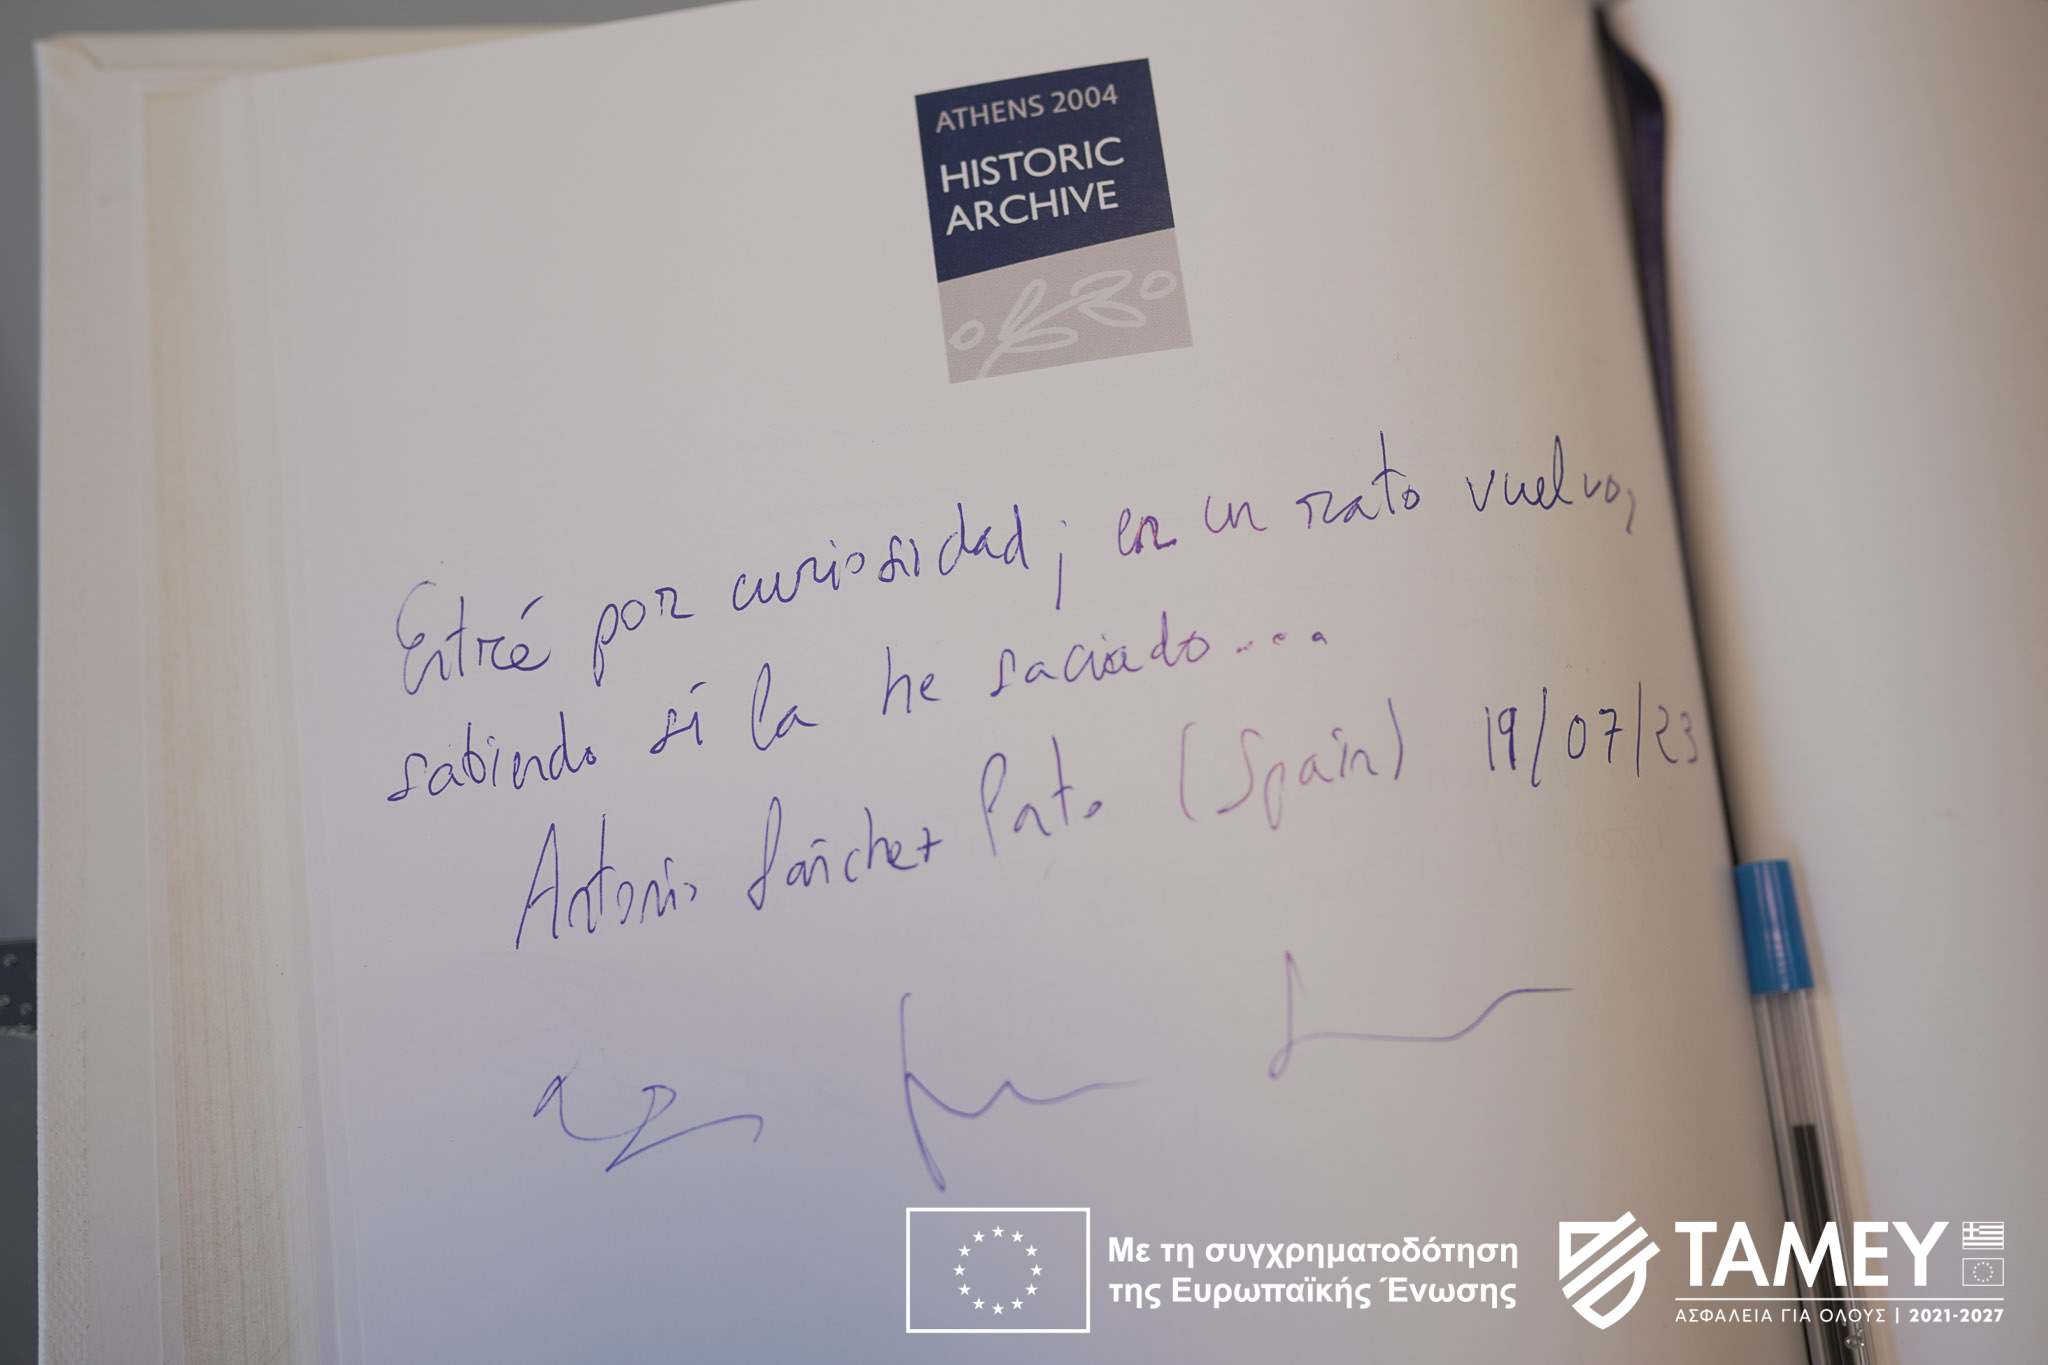 ATHENS 2004
HISTORIC
ARCHIVE
Entré por curiosidad; en un rato vuelvo,
sabiendo sí la he saciado...
Antonio Sánchez Pato (Spain) 19/07/23
Με τη συγχρηματοδότηση
της Ευρωπαϊκής Ένωσης
TAMEY
ΑΣΦΑΛΕΙΑ ΓΙΑ ΟΛΟΥΣ | 2021-2027